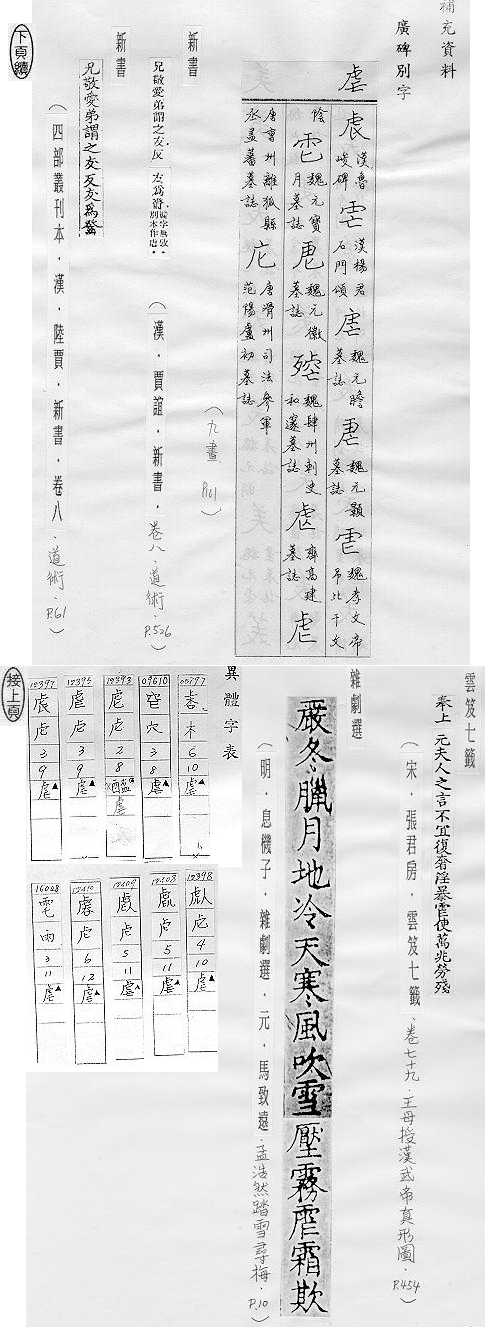 補充資料
廣碑別字
虐
漢魯峻碑
漢楊君石門頌
魏元瞻墓誌
魏元顥墓誌
魏孝文帝弔比干文
陰
魏元寶月墓誌
魏元徽墓誌
魏肆州刺史和邃墓誌
齊高建墓誌
唐曹州離狐縣丞蓋蕃墓誌
唐滑州司法參軍范陽盧初墓誌
(九畫 P.101)
新書
兄敬愛弟謂之友反友為
(漢.賈誼.新書.卷八.道術.P.526)
新書
兄敬愛弟謂之友反友為
(四部叢刊本.漢.陸賈.新書.卷八.道術.P.61)
下頁續
接上頁
雲笈七籤
奉上元夫人之言不宜復奢淫暴使萬兆勞殘
(宋.張君房.雲笈七籤.卷七十九.王母授漢武帝真形圖.P.454)
雜劇選
嚴冬臘月地冷天寒風吹雪壓霧霜欺
(明.息機子.雜劇選.元.馬致遠.孟浩然踏雪尋梅.P.10)
異體字表
木 6 10 虐
09610 穴 3 8 虐
12393 虍 2 8 虐
12395 虍 3 9 虐
12397 虍 3 9 虐
12398 虍 4 10 虐
12408 虍 5 11 虐
12409 虍 5 11 虐
12410 虍 6 12 虐
雨 3 11 虐